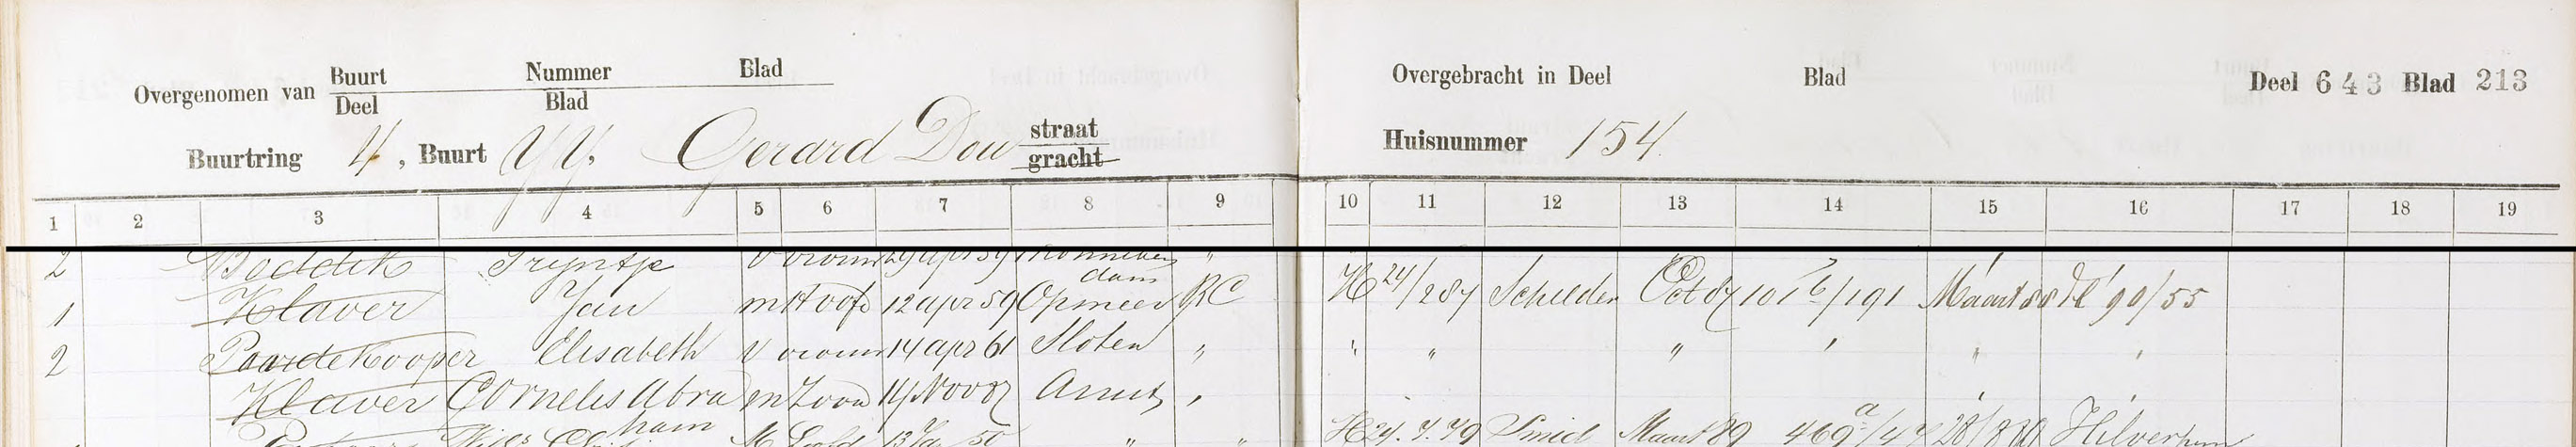 Overgenomen van Buurt Nummer Blad
Deel Blad
Overgebracht in Deel Blad Deel 643 Blad 213
Buurtring 4, Buurt YY. Gerard Dou straat
gracht
Huisnummer 154.
1 2 3 4 5 6 7 8 9 10 11 12 13 14 15 16 17 18 19
2 Trijntje V vrouw 29 apr 59
dam
1 Klaver Jan m Hoofd 12 apr 59 Opmeer RC H 24/284 Schilder Oct 87 Maart 88 90/55
2 Paardekooper Elisabeth V vrouw 14 apr 61 Sloten " " " " " " "
Klaver Cornelis Abra m Zoon Amst
ham
Smid Maart 89 Hilversum